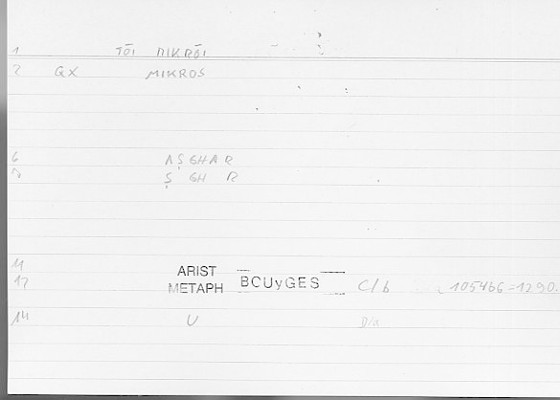 1 TŌI MIKRŌI
2 GX MIKROS
6 AṢGHAR
7 ṢGHR
11
ARIST
12 METAPH BCUyGES C/b 1054b6=1290.
14 U